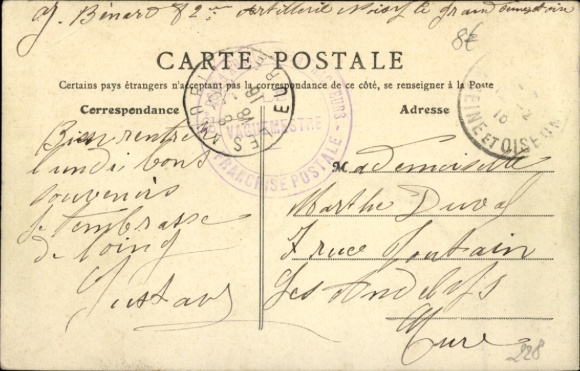 G. Bénard 82me Artillerie Noisy le grand Seine et Oise
8€
CARTE POSTALE
Certains pays étrangers n'acceptant pas la correspondance de ce côté, se renseigner à la Poste
Correspondance
Adresse
VAGUEMESTRE
FRANCHISE POSTALE
EURE
SEINE ET OISE
Bien rentré
lundi bons
souvenirs
Je t'embrasse
de loin
Gustave
Mademoiselle
Marthe Duval
7 rue Fontain
Les Andelys
Eure
228